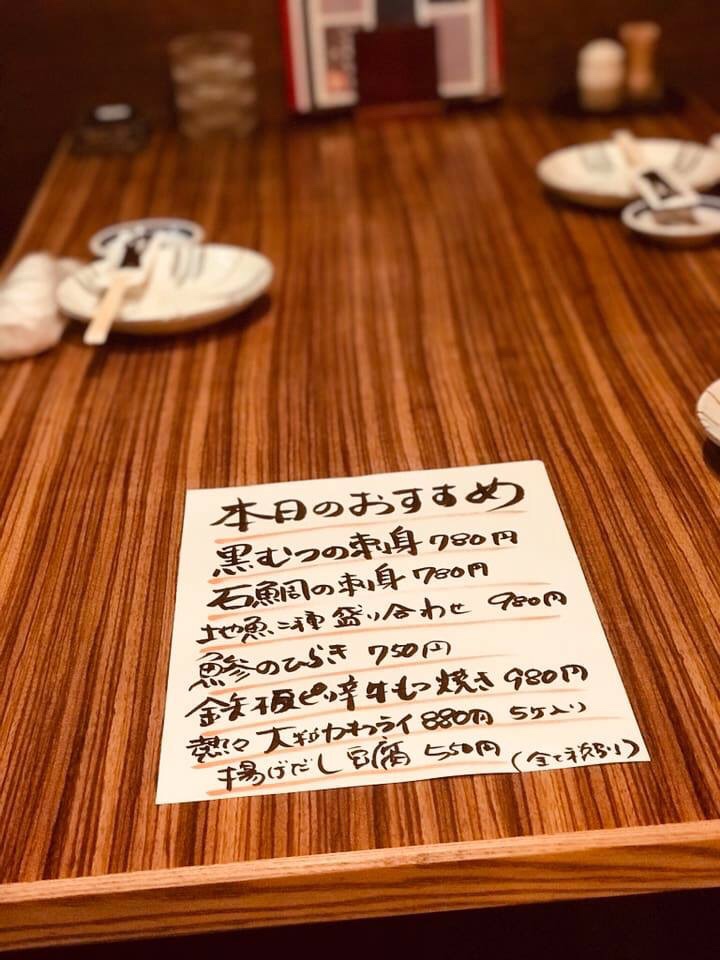 本日のおすすめ
黒むつの刺身 780円
石鯛の刺身 780円
地魚二種盛り合わせ 980円
鯵のひらき 750円
鉄板ピリ辛牛もつ焼き 980円
熱々 大粒カキフライ 880円 5ヶ入り
揚げだし豆腐 550円 (全て税別り)